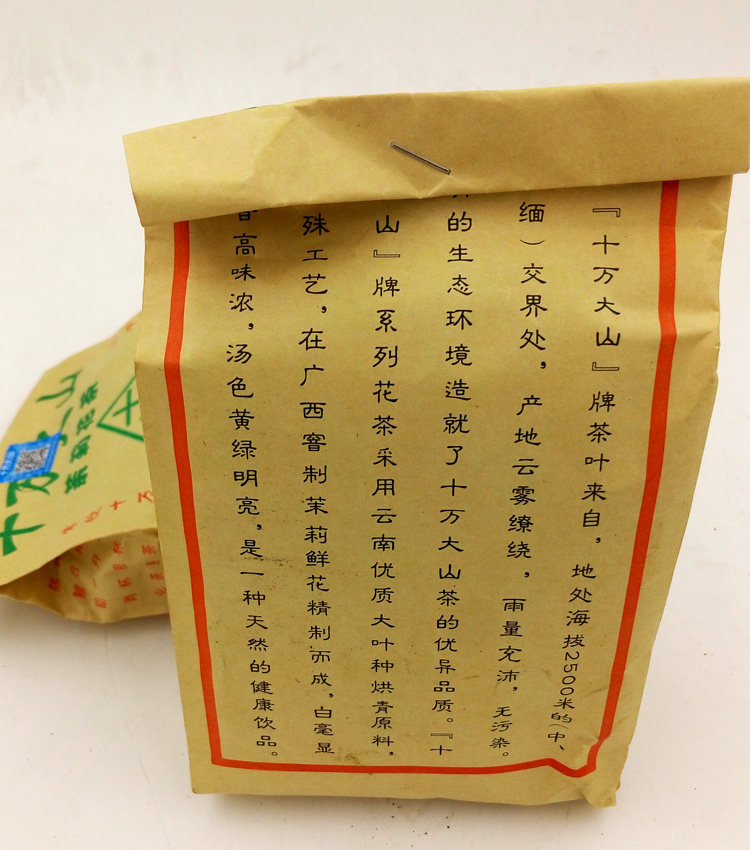 『十万大山』牌茶叶来自，地处海拔2500米的（中、
缅）交界处，产地云雾缭绕，雨量充沛，无污染。
的生态环境造就了十万大山茶的优异品质。『十
山』牌系列花茶采用云南优质大叶种烘青原料，
殊工艺，在广西窨制茉莉鲜花精制而成，白毫显
高味浓，汤色黄绿明亮，是一种天然的健康饮品。
山
茉莉花茶